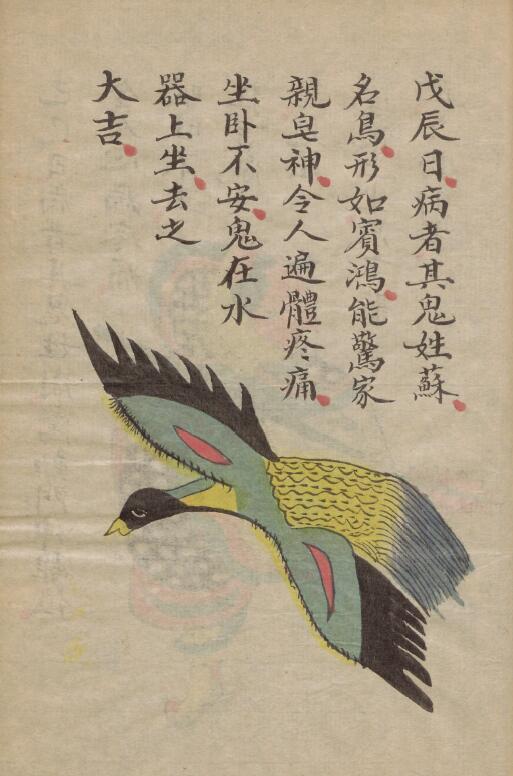 戊辰日病者其鬼姓蘇
名鳥形如賓鴻能驚家
親皂神令人遍體疼痛
坐卧不安鬼在水
器上坐去之
大吉